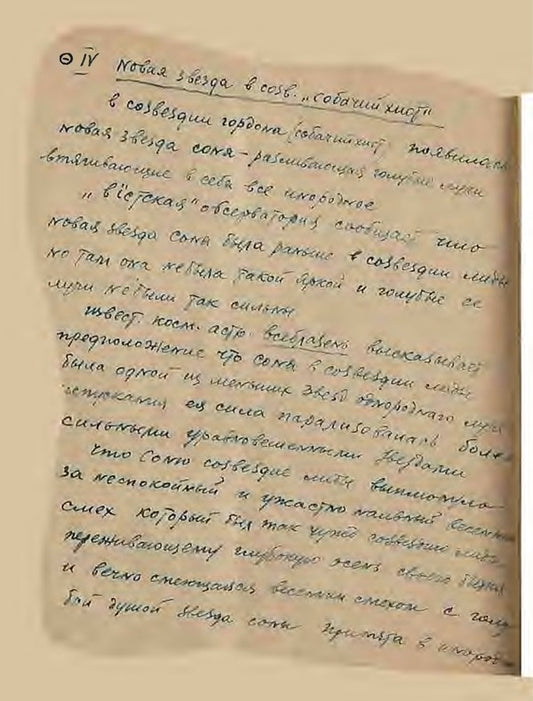 Θ IV Новая звезда в созв. „собачий хист"
в созвездии гордона (собачий хист) появилась
новая звезда соня – разливающая голубые лучи
втягивающие в себя все инородное
„вiетская" обсерватория сообщает что
новая звезда соня была раньше в созвездии лиды
но там она небыла такой яркой и голубые ее
лучи небыли так сильны
извест. косм. астр. всебразень высказывает
предположение что соня в созвездии лиды
была одной из меньших звезд однороднаго луча
испускания ея сила парализовалась более
сильными уравновешенными звездами
что соню созвездие лиды вытолкнуло
за неспокойный и ужастно наивный веселый
смех который был так чужд созвездию лиды
переживающему глубокую осень своего бытия
и вечно смеющаяся веселым смехом с голу-
бой душой звезда соня принята в инород-